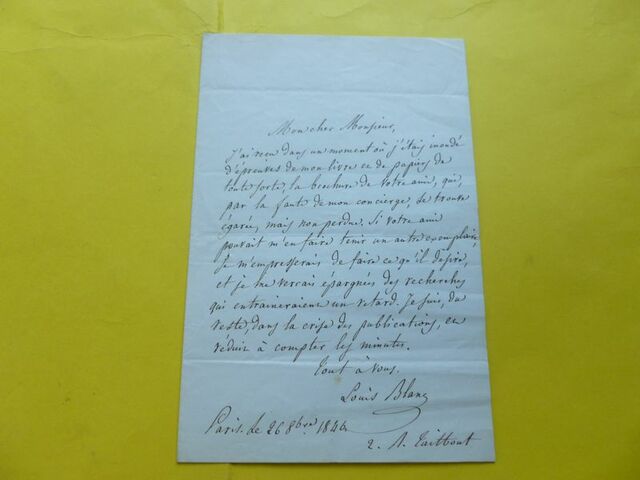 Mon cher Monsieur,
J'ai reçu dans un moment où j'étais inondé
d'épreuves de mon livre et de papiers de
toute sorte, la brochure de votre ami, qui,
par la faute de mon concierge, se trouve
égarée, mais non perdue. Si votre ami
pouvait m'en faire tenir un autre exemplaire,
je m'empresserais de faire ce qu'il désire,
et je me verrais épargnés des recherches
qui entraineraient un retard. Je suis, du
reste, dans la crise des publications, et
réduit à compter les minutes.
Tout à vous.
Louis Blanc
Paris. le 26 8bre 184
2. R. Taitbout